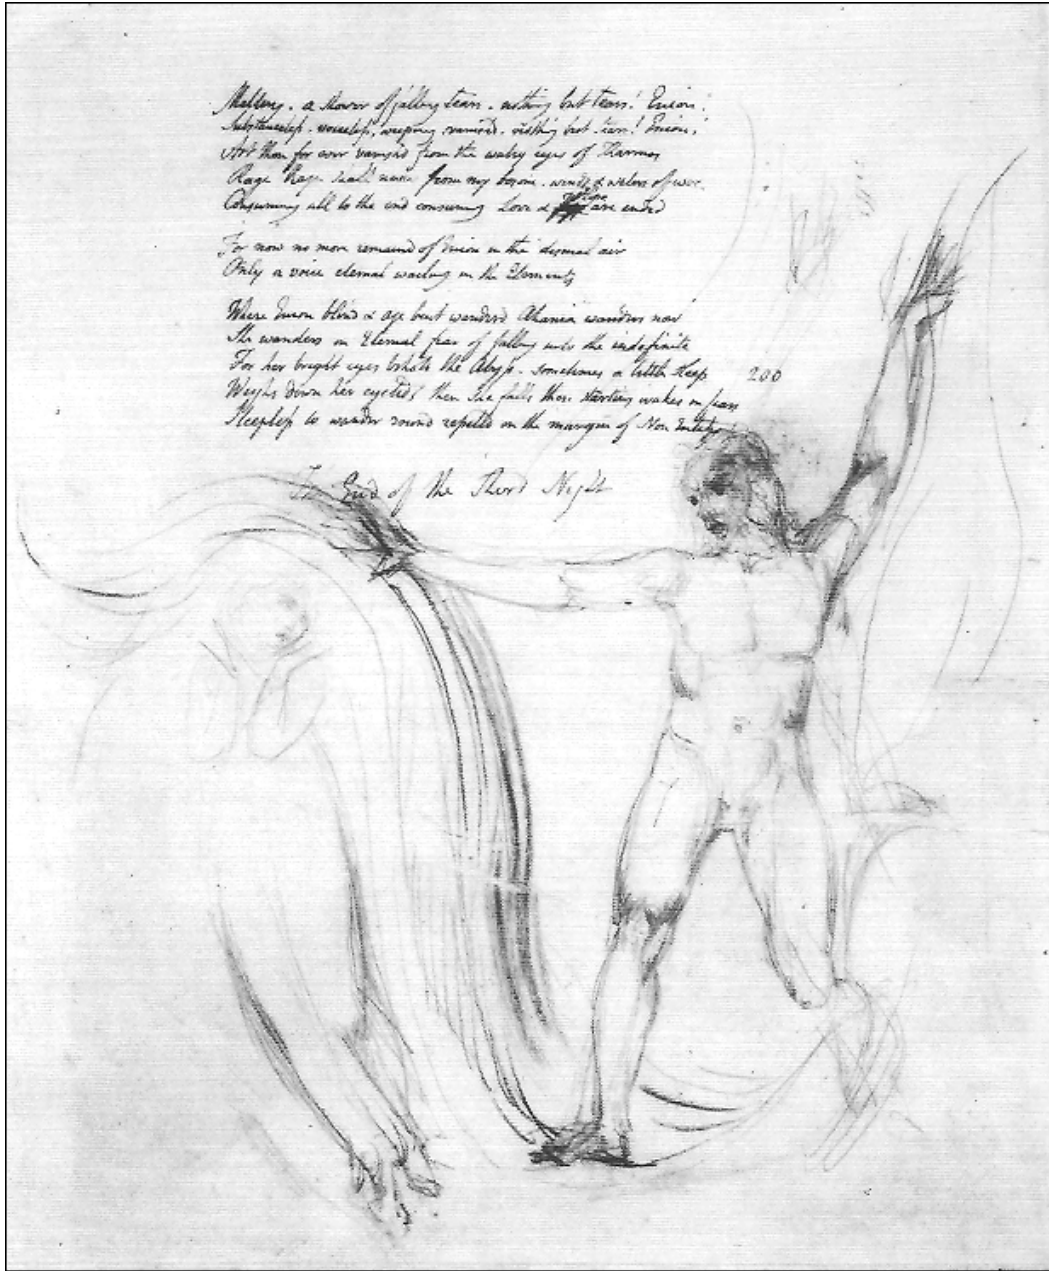 Melting. a shower of falling tears. nothing but tears! Enion:
Substanceless. voiceless, weeping, vanishd. nothing but tears! Enion;
Art thou for ever vanishd from the watry eyes of Tharmas
Rage Rage shall never from my bosom. winds & waters of woe.
Consuming all to the end consuming Love & Hope are ended
For now no more remaind of Enion in the dismal air
Only a voice eternal wailing in the Elements
Where Enion blind & age bent wanderd Ahania wanders now
She wanders in Eternal fear of falling into the indefinite
For her bright eyes behold the Abyss. sometimes a little sleep 200
Weighs down her eyelids then she falls then starting wakes in fears
Sleepless to wander round repelld on the margin of Non Entity
The End of the Third Night